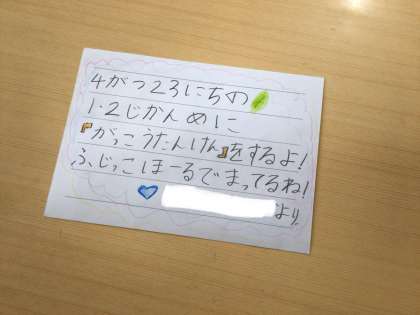 4がつ23にちの
1・2じかんめに
『がっこうたんけん』をするよ!
ふじっこほーるでまってるね!
より